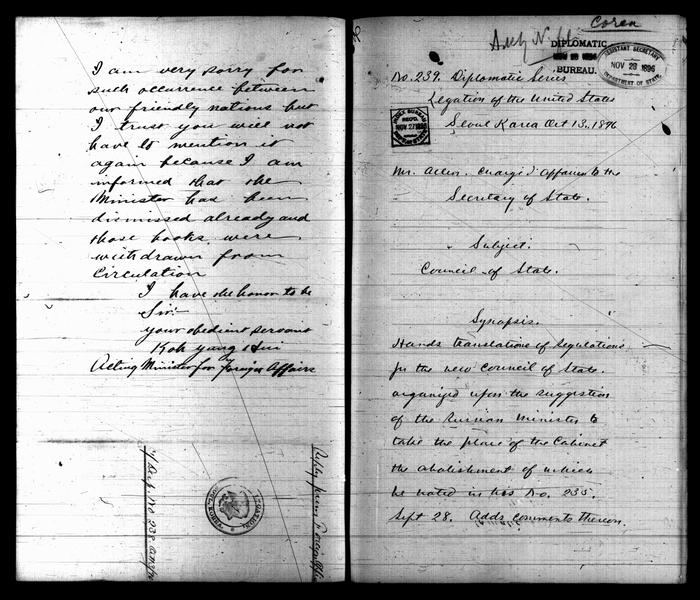 I am very sorry for
such occurrence between
our friendly nations but
I trust you will not
have to mention it
again because I am
informed that the
Minister had been
dismissed already and
those books were
withdrawn from
circulation
I have the honor to be
Sir:
your obedient servant
Koh yung Hui
Acting Minister for Foreign Affairs
Reply from Foreign Office
Corea
DIPLOMATIC
BUREAU.
ASSISTANT SECRETARY
NOV 28 1896
DEPARTMENT OF STATE
No. 239. Diplomatic Series
Legation of the United States
Seoul Korea Oct 13. 1896
REC'D.
NOV 27 1896
Mr. Allen. Chargé d'Affaires to the
Secretary of State.
Subject:
Council of State.
Synopsis.
Hands translations of regulations
for the new Council of State.
organized upon the suggestion
of the Russian Minister to
take the place of the Cabinet
the abolishment of which
he noted in his No. 235.
Sept 28. Adds comments thereon.